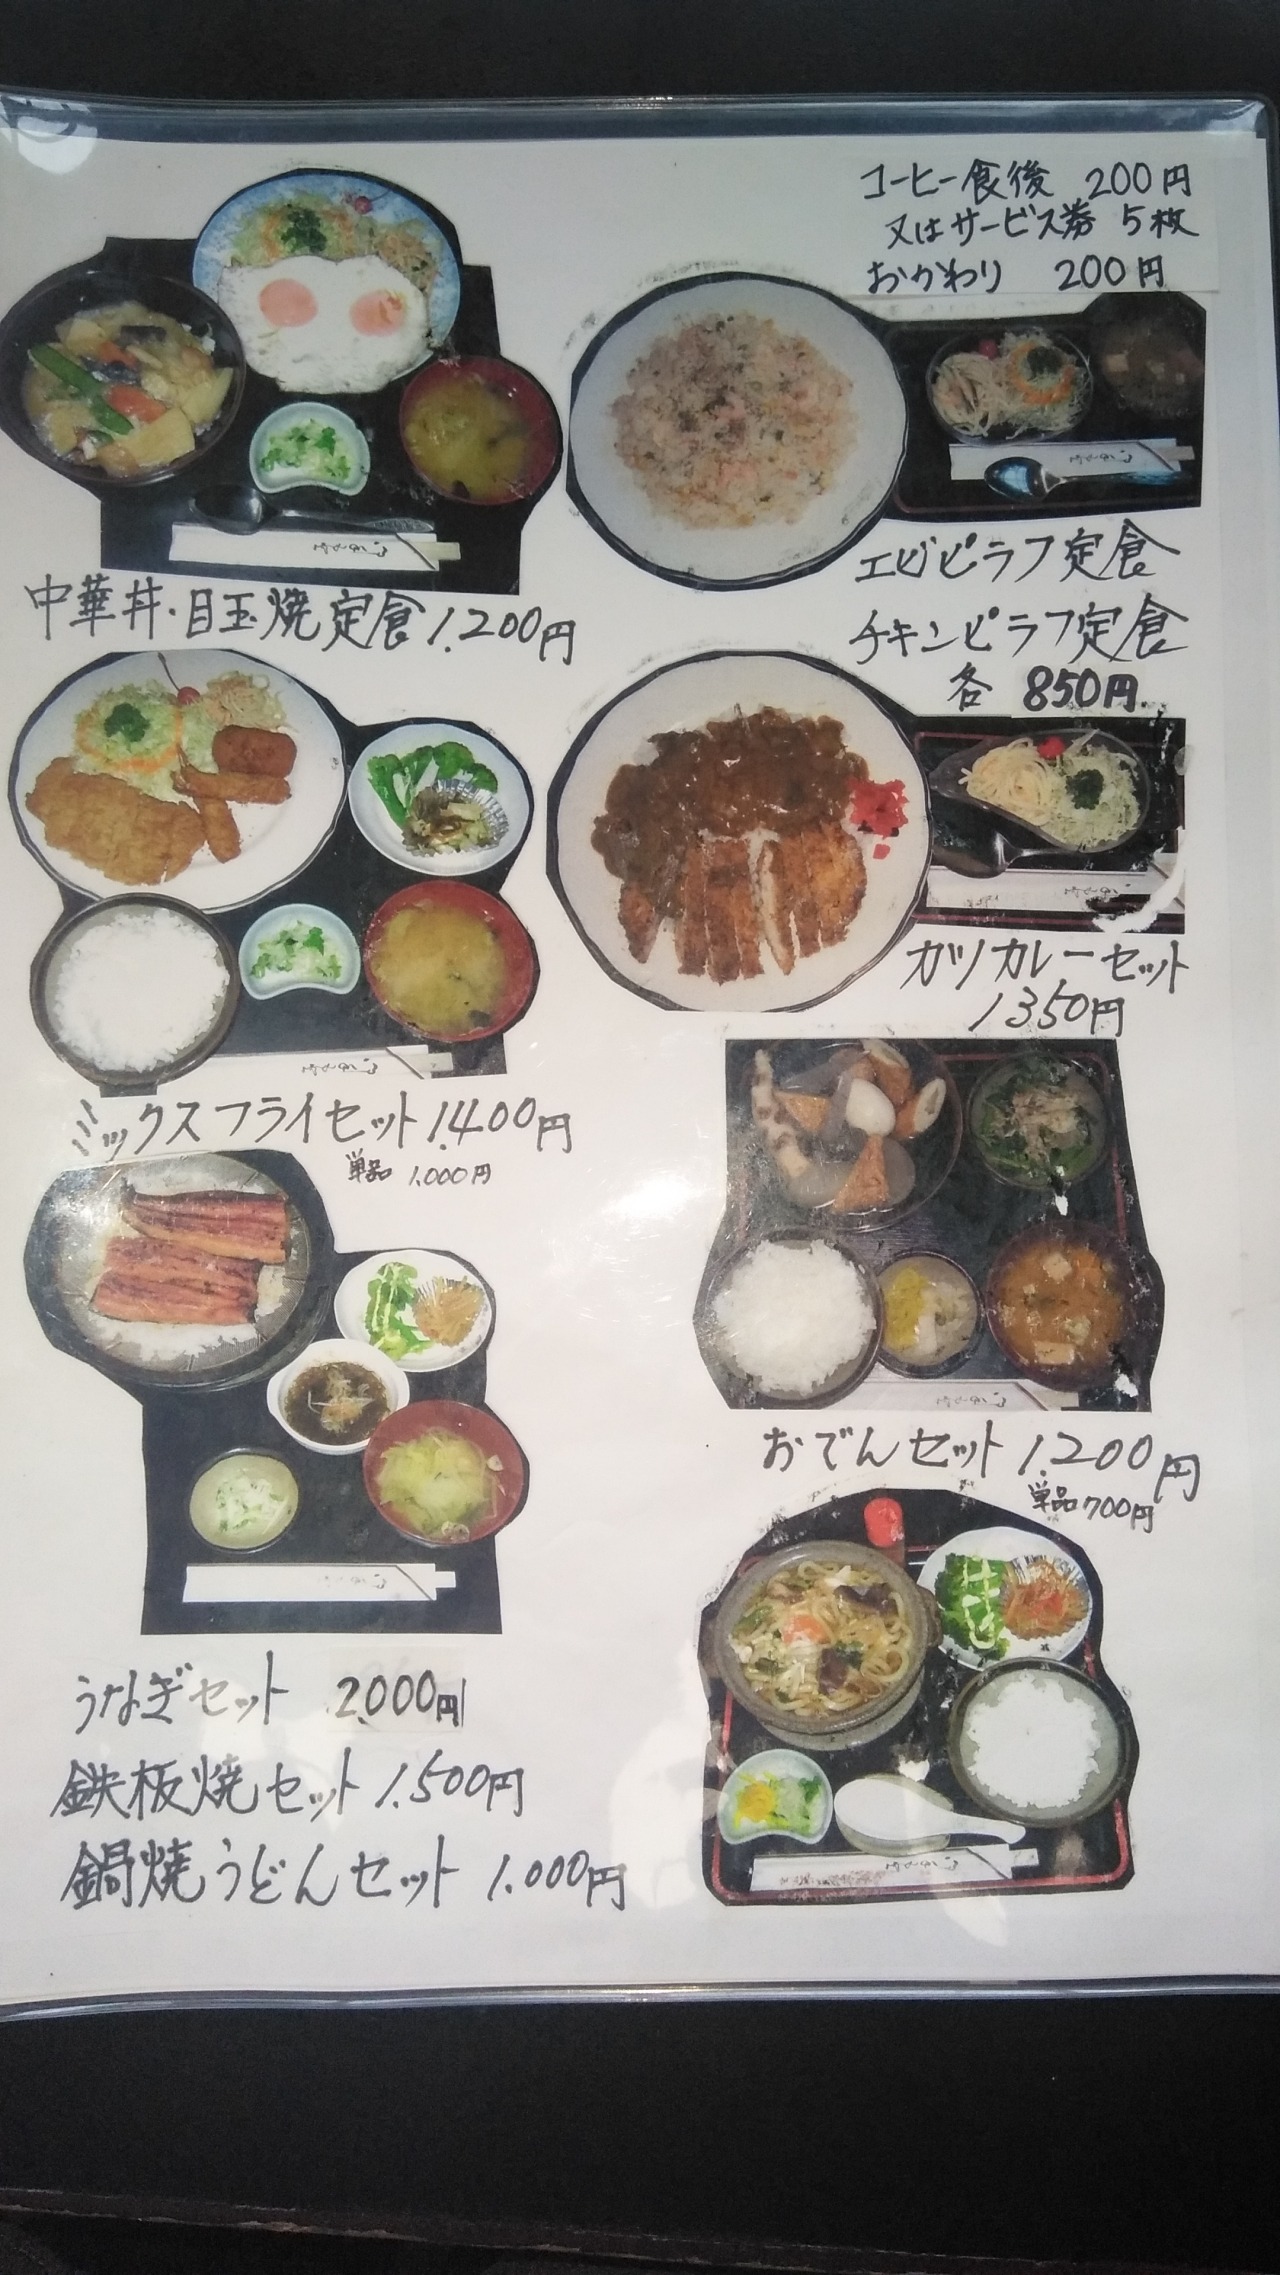 コーヒー食後 200円
又はサービス券 5枚
おかわり 200円
中華丼・目玉焼定食 1.200円
エビピラフ定食
チキンピラフ定食
各 850円
ミックスフライセット 1.400円
単品 1.000円
カツカレーセット
1350円
おでんセット 1.200円
単品 700円
うなぎセット 2.000円
鉄板焼セット 1.500円
鍋焼うどんセット 1.000円